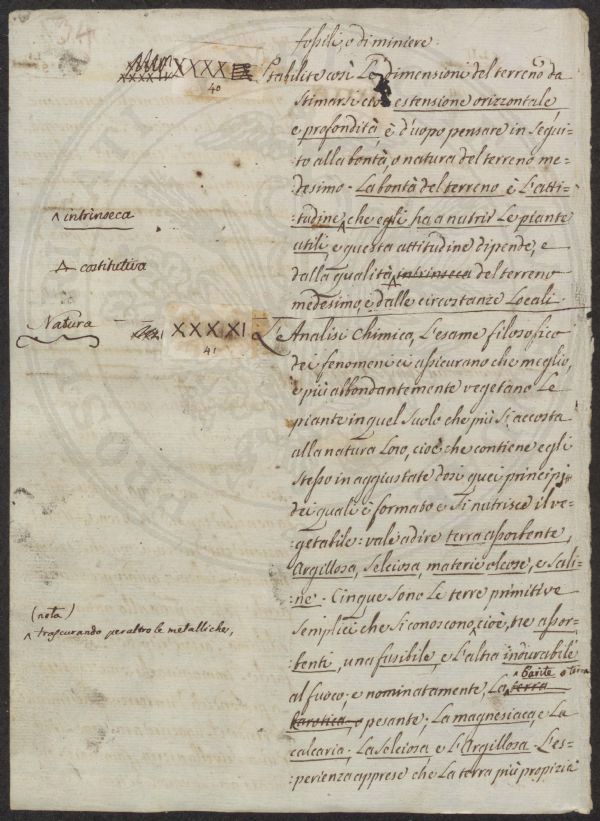 fossili, o di miniere.
XXXX Stabilite così le dimensioni del terreno da
40
stimarsi cioè estensione orizzontale,
e profondità, è d'uopo pensare in segui-
to alla bontà, o natura del terreno me-
:desimo. La bontà del terreno è l'atti-
^ intrinseca
:tudine, ^ che egli ha a nutrir le piante
utili, e questa attitudine dipende, e
^ costitutiva
dalla qualità ^ intrinseca del terreno
medesimo, e dalle circostanze locali.
Natura
XXXXI L'Analisi Chimica, l'esame filosofico
41
dei fenomeni ci assicurano che meglio,
e più abbondantemente vegetano le
piante in quel suolo che più si accosta
alla natura loro, cioè che contiene egli
stesso in aggiustate dosi quei principj
dei quali è formato e si nutrisce il ve-
:getabile: vale a dire terra assorbente,
Argillosa, Selciosa, materie oleose, e sali-
:ne. Cinque sono le terre primitive
(nota)
^ trascurando per altro le metalliche,
semplici che si conoscono, ^ cioè, tre assor-
:benti, una fusibile, e l'altra indurabile
^ Barite o terra
al fuoco, e nominatamente, la terra
barotica, o pesante; La magnesiaca, e La
calcaria; La Selciosa, e L'Argillosa. L'es-
:perienza apprese che la terra più propizia